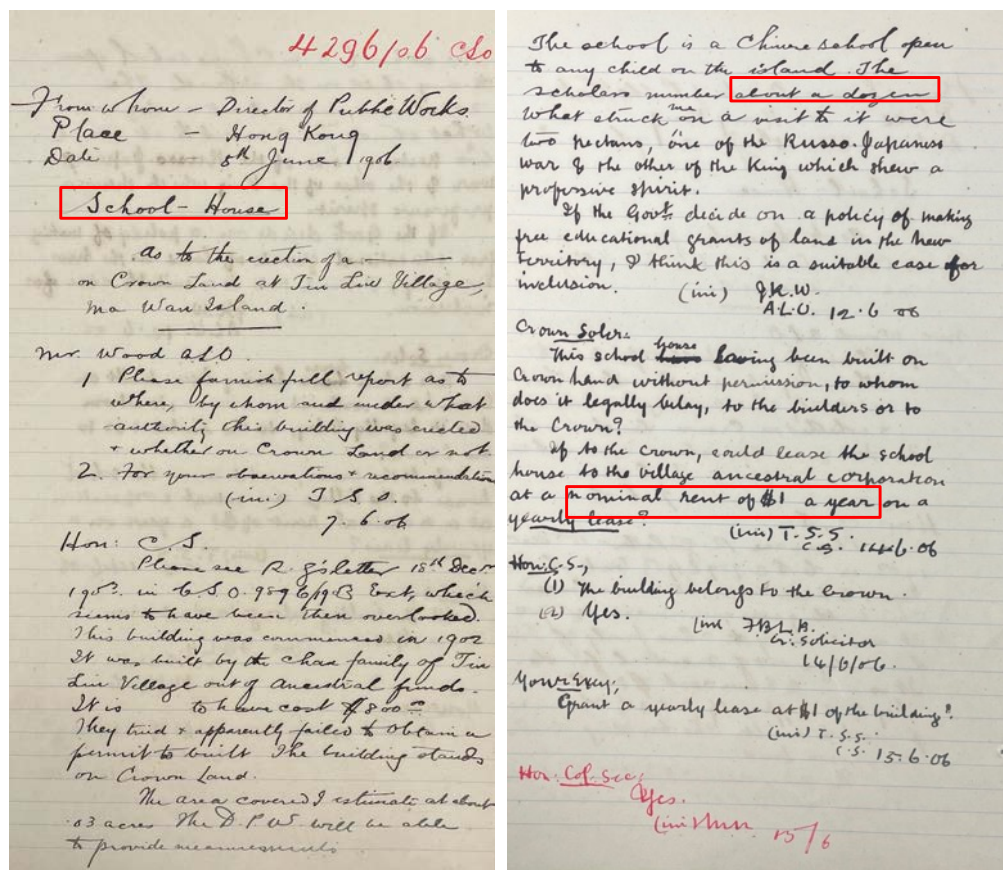 4296/06 CSO
From whom – Director of Public Works.
Place – Hong Kong
Date 8th June 1906
School – House
As to the erection of a ———
on Crown Land at Tin Liu Village,
Ma Wan Island.
Mr. Wood ALO.
1 Please furnish full report as to
where, by whom and under what
authority this building was erected
+ whether on Crown Land or not.
2. For your observations & recommendation
(ini:) T.S.S.
7.6.06
Hon: C.S.
Please see R. G's letter 18th Decr
1903 in C.S.O. 9896/1903 Ext, which
seems to have been then overlooked.
This building was commenced in 1902
It was built by the Chan family of Tin
Liu Village out of Ancestral funds.
It is to have cost $800.00
They tried & apparently failed to obtain a
permit to built The building stands
on Crown Land.
The area covered I estimate at about
.03 acres The D.P.W. will be able
to provide measurements
The school is a Chinese school open
to any child on the island. The
scholars number about a dozen
What struck me on a visit to it were
two pictures, one of the Russo-Japanese
war & the other of the King which shew a
progressive spirit.
If the Govt. decide on a policy of making
free educational grants of land in the New
Territory, I think this is a suitable case for
inclusion. (ini) J.R.W.
A.L.O. 12.6 06
Crown Solcr.
This school house having been built on
Crown Land without permission, to whom
does it legally belong, to the builders or to
the Crown?
If to the Crown, could lease the school
house to the village ancestral corporation
at a nominal rent of $1 a year on a
yearly lease?
(ini) T.S.S.
C.S. 14.6.06
Hon: C.S.,
(1) The building belongs to the Crown.
(2) Yes.
(ini F.B.L.B.
Cr: Solicitor
14/6/06.
Your Excy,
Grant a yearly lease at $1 of the building?
(ini) T.S.S.
C.S. 15.6.06
Hon: Col. Sec,
Yes.
(ini
15/6